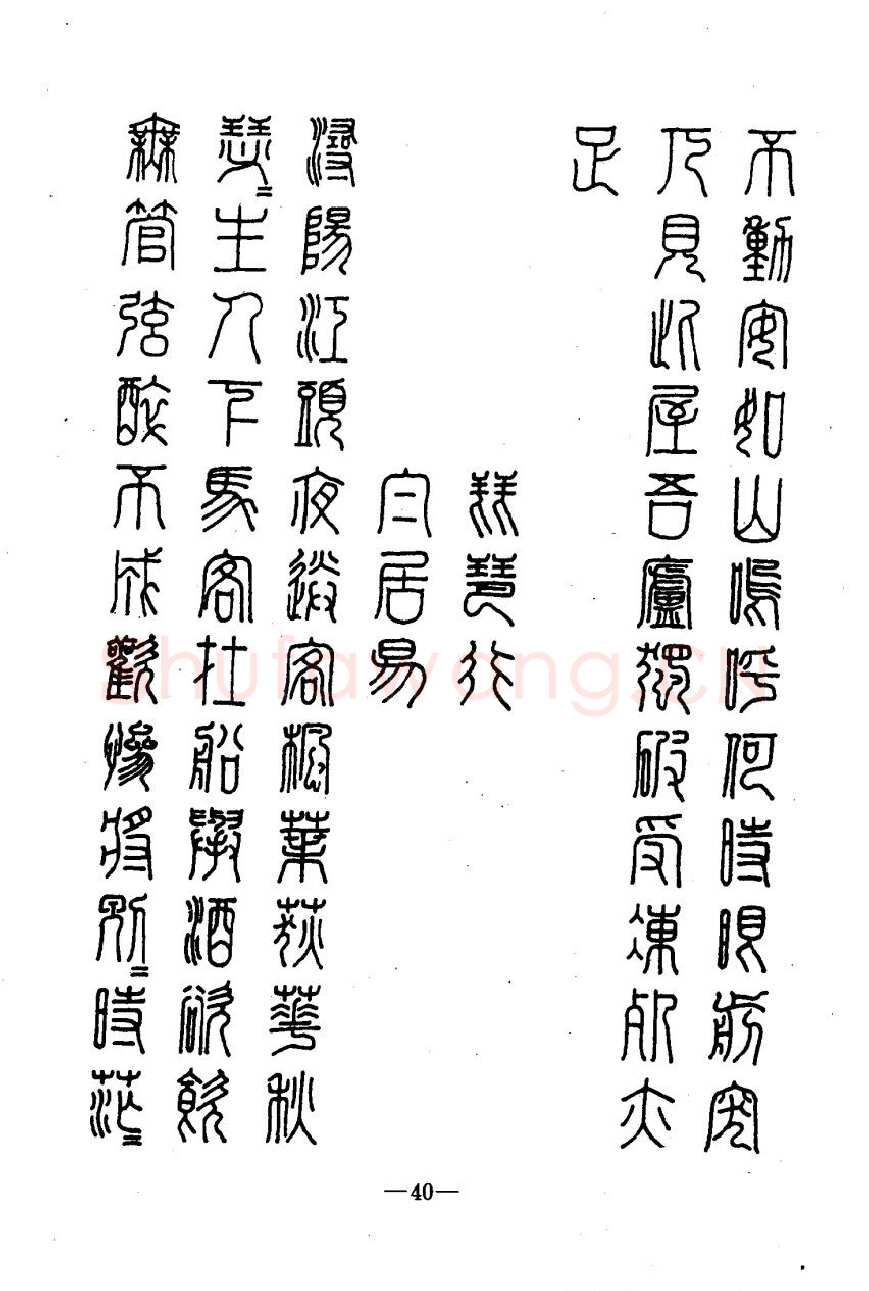 不動安如山嗚呼何時眼前突
兀見此屋吾廬獨破受凍死亦
足
琵琶行
白居易
潯陽江頭夜送客楓葉荻華秋
瑟〻主人下馬客在船舉酒欲飲
無管弦醉不成歡慘將別〻時茫〻
—40—
Shufawang.CN